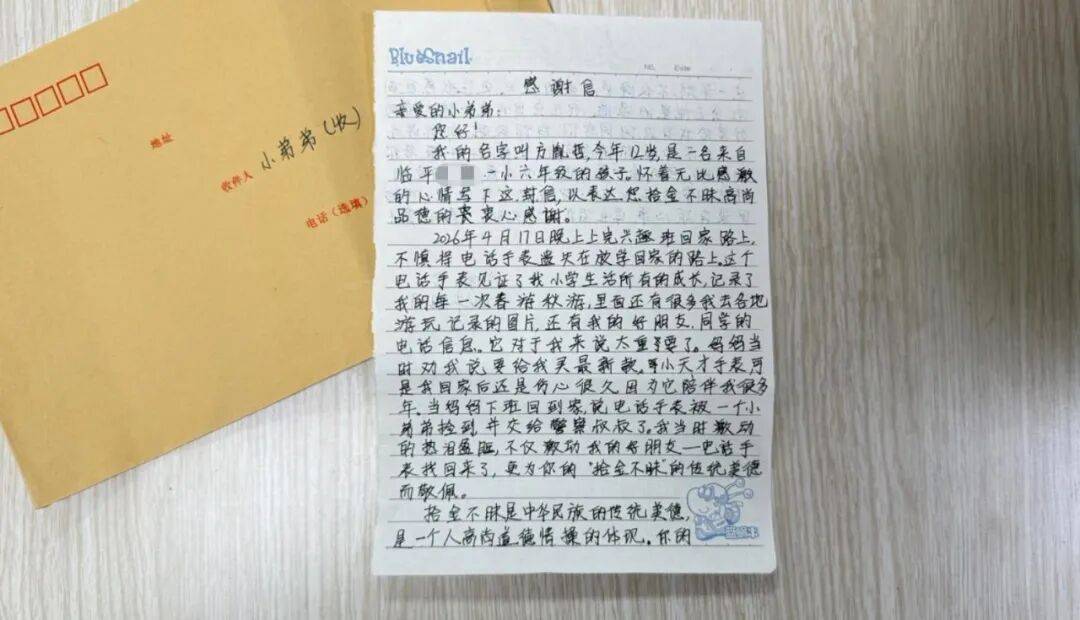 地址
收件人 小弟弟(收)
电话(选填)
BlueSnail
NO. Date
感谢信
亲爱的小弟弟:
您好!
我的名字叫方胤哲,今年12岁,是一名来自
临平 一小六年级的孩子。怀着无比感激
的心情写下这封信,以表达您拾金不昧高尚
品德的衷心感谢。
2026年4月17日晚上上完兴趣班回家路上,
不慎将电话手表遗失在放学回家的路上。这个
电话手表见证了我小学生活所有的成长,记录了
我的每一次春游秋游,里面还有很多我去各地
游玩记录的图片,还有我的好朋友、同学的
电话信息。它对于我来说太重要了。妈妈当
时劝我说要给我买最新款小天才手表,可
是我回家后还是伤心很久,因为它陪伴我很多
年。当妈妈下班回到家,说电话手表被一个小
弟弟捡到并交给警察叔叔了。我当时激动
的热泪盈眶,不仅激动我的好朋友—电话手
表找回来了,更为你的“拾金不昧”的传统美德
而敬佩。
拾金不昧是中华民族的传统美德,
是一个人高尚道德情操的体现。你的
蓝蜗牛